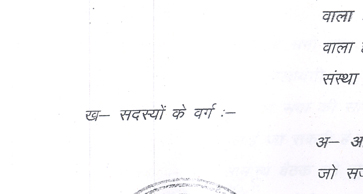 वाला
वाला
संस्था
ख– सदस्यों के वर्ग :–
अ–
जो